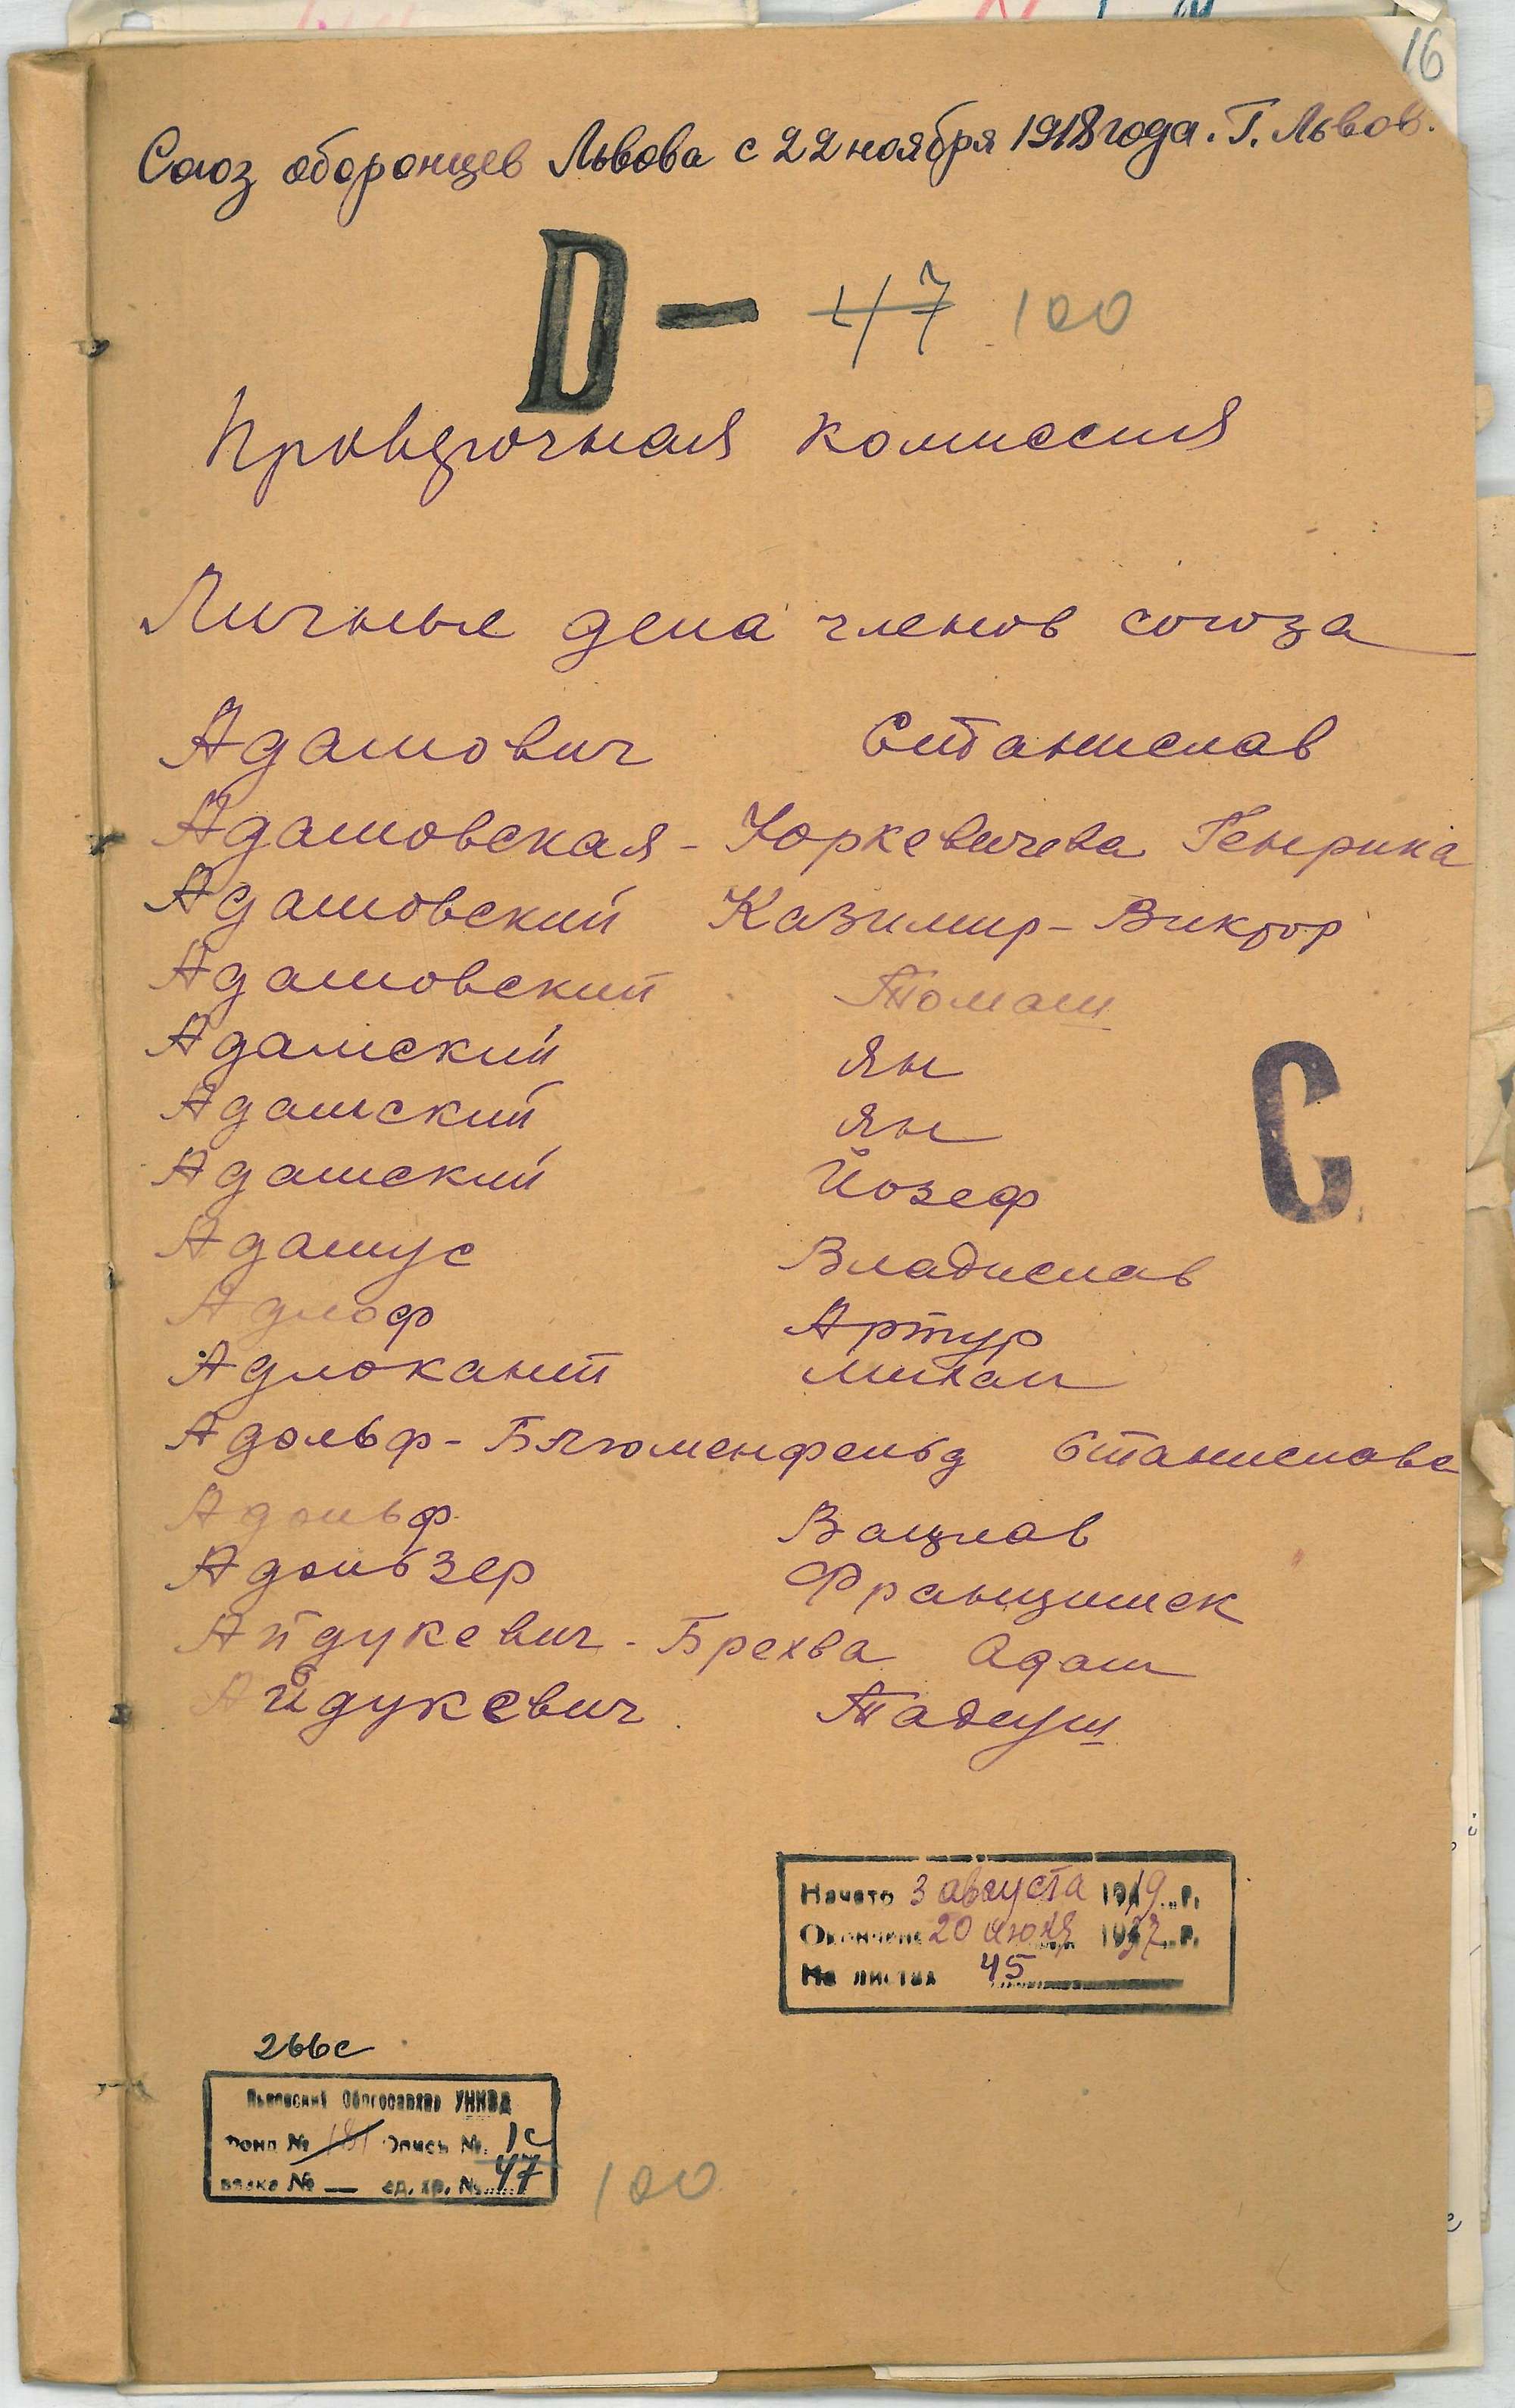 16
Союз оборонцев Львова с 22 ноября 1918 года. Г. Львов.
D — 47 100
Проверочная комиссия
Личные дела членов союза
Адамович Станислав
Адамовская - Юркевичева Генрика
Адамовский Казимир - Виктор
Адамовский Томаш
Адамский Ян
Адамский Ян
Адамский Йозеф
С
Адамус Владислав
Адлоф Артур
Адлокант Михал
Адольф - Блюменфельд Станислава
Адольф Вацлав
Адользер Францишек
Айдукевич - Брехва Адам
Айдукевич Тадеуш
Начато 3 августа 1919 г.
Окончено 20 июня 1937 г.
На листах 45
266с
Львовский Облгосархив УНКВД
Фонд № 181 Опись № 1с
вязка № — ед. хр. № 47
100